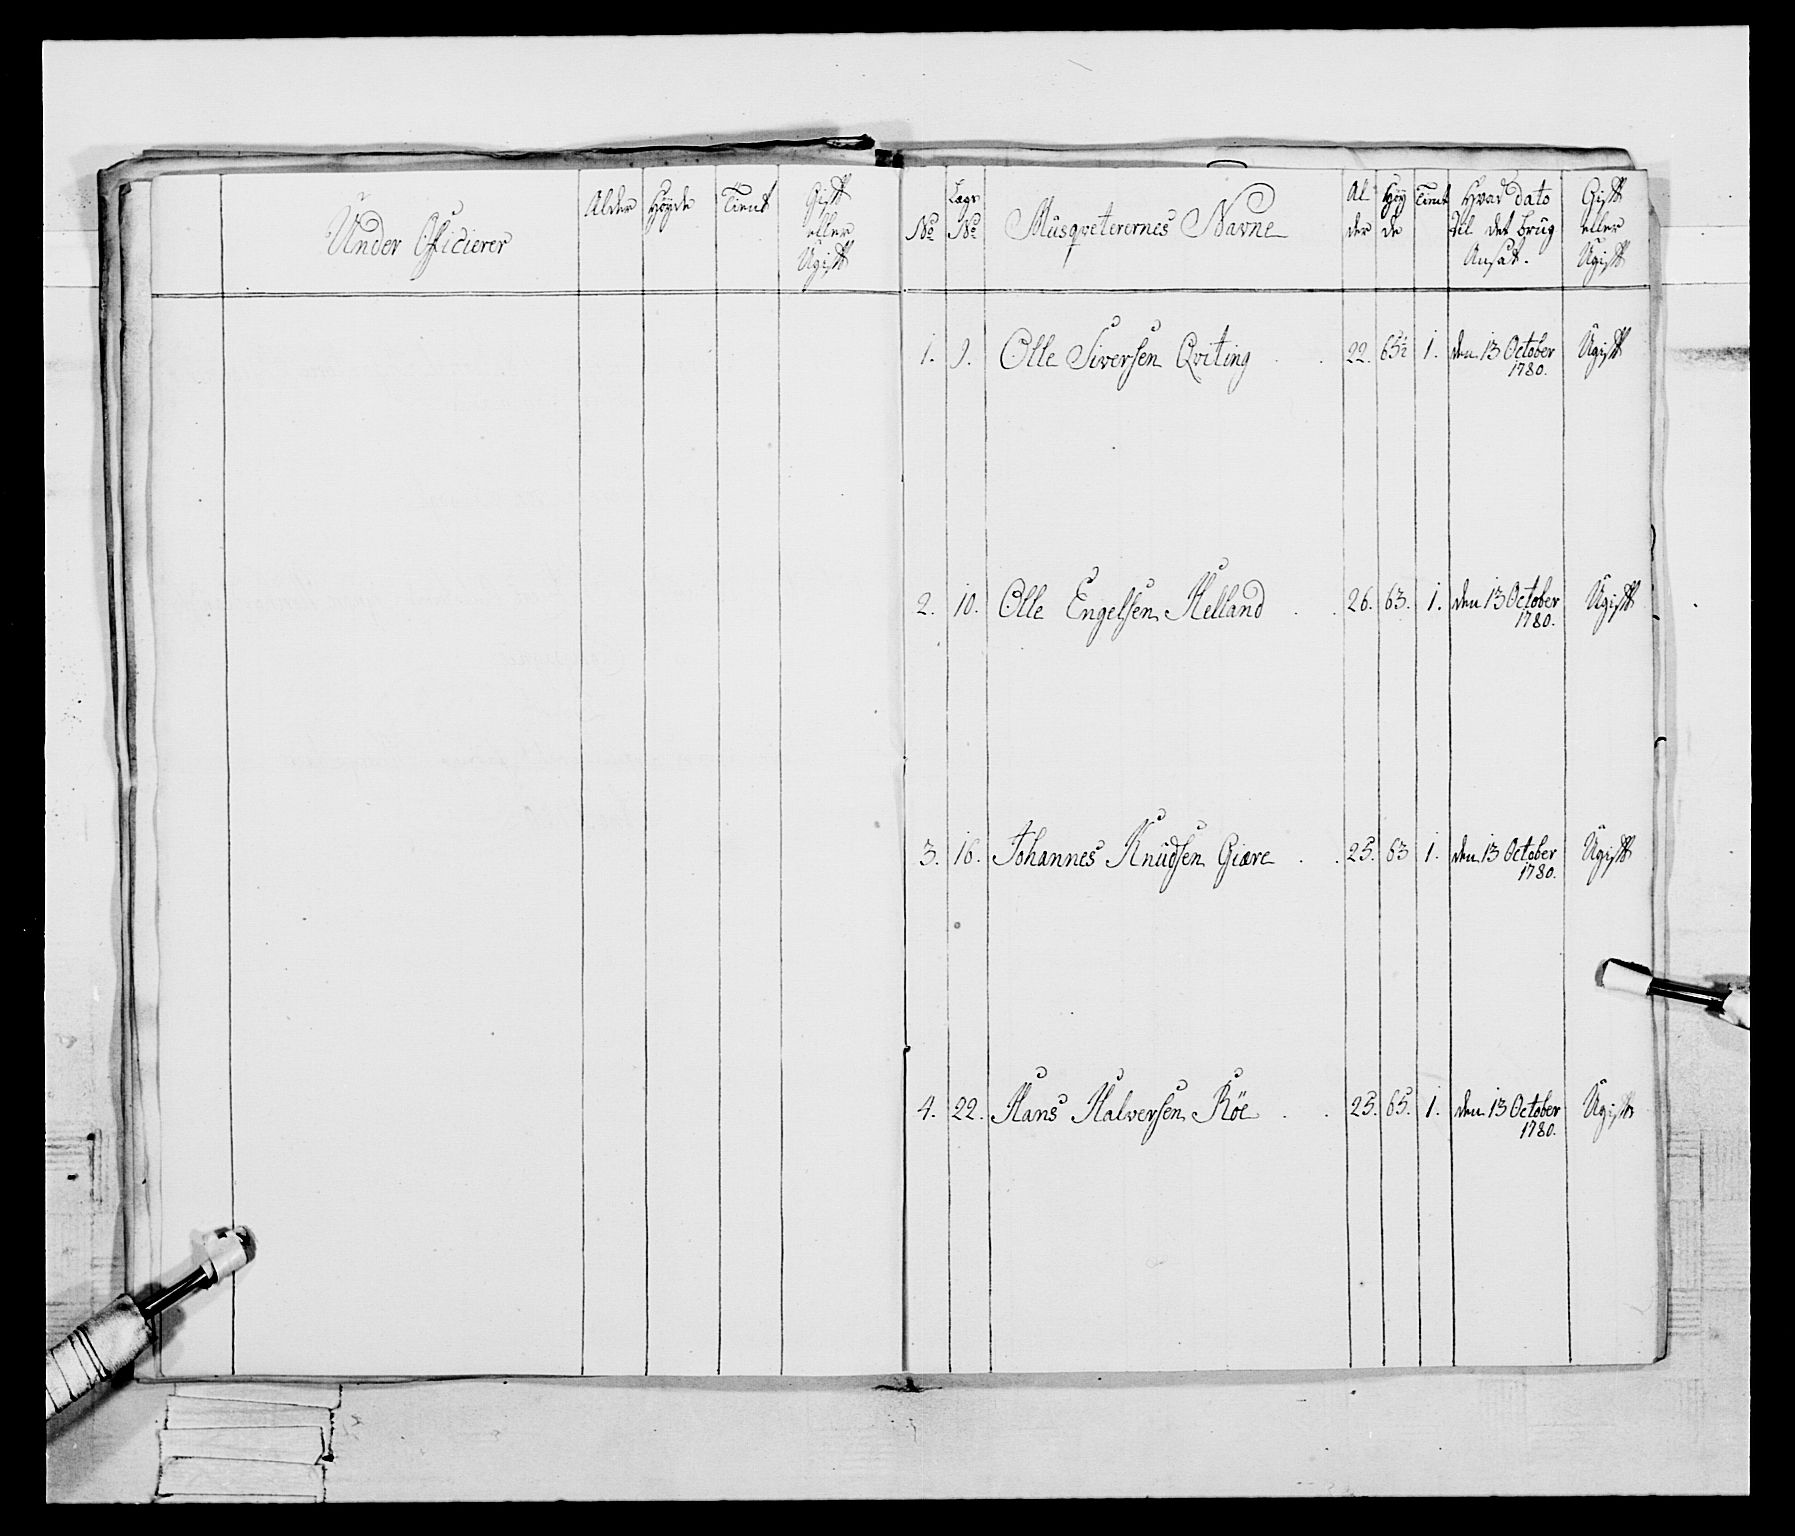 Under Officierer
Alder
Høyde
Tient
Gift
eller
Ugift
No
Lægs
No
Musqveterernes Navne
Al
der
Høy
de
Tient
Hvad dato
til det brug
Ansat.
Gift
eller
Ugift
1. 9. Olle Siversen Qviting . . 22. 65½ 1. den 13 October Ugift
1780.
2. 10. Olle Engelsen Helland . . 26. 63. 1. den 13 October Ugift
1780.
3. 16. Johannes Knudsen Giære . . 25. 63 1. den 13 October Ugift
1780.
4. 22. Hans Halversen Röe . . 25. 65. 1. den 13 October Ugift
1780.